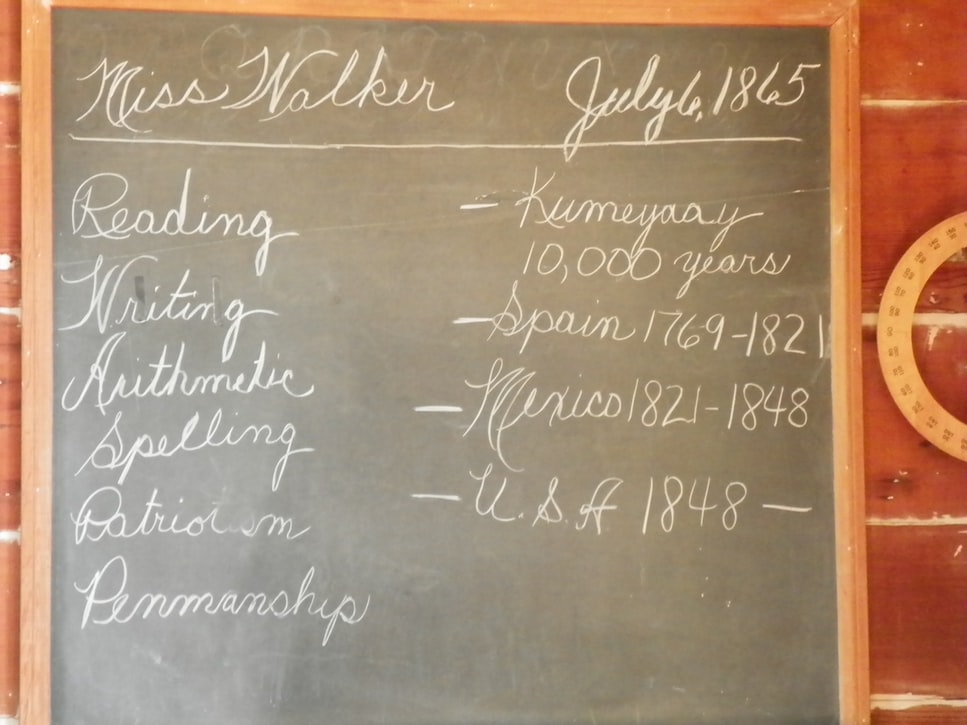 Miss Walker July 6, 1865
Reading
Writing
Arithmetic
Spelling
Patriotism
Penmanship
– Kumeyaay
10,000 years
– Spain 1769-1821
– Mexico 1821-1848
– U.S.A 1848 –